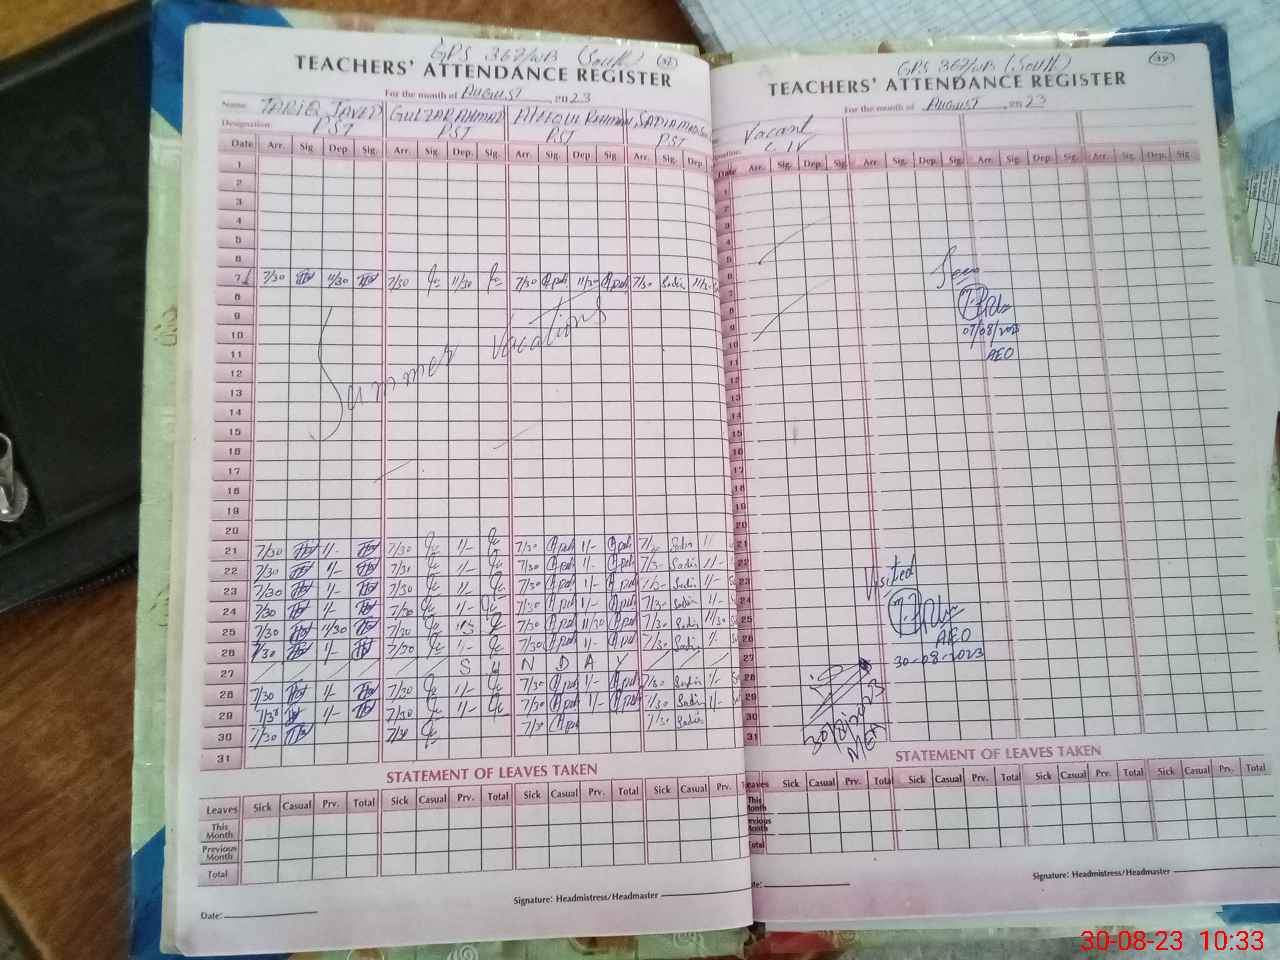 GPS 367/WB (South)
TEACHERS' ATTENDANCE REGISTER
For the month of AUGUST 2023
Name TARIQ JAVED GULZAR AHMAD RAHMAN SADIA
Designation PST PST PST PST
Date Arr. Sig. Dep. Sig. Arr. Sig. Dep. Sig. Arr. Sig. Dep Sig. Arr. Sig. Dep.
1
2
3
4
5
6
7 7/30 11/30 7/30 11/30 7/30 11/30 7/30 Sadia 11/30
8
9
10
11
12
13
14
15
16
17
18
19
20
Summer Vacations
21 7/30 1/- 7/30 1/- 7/30 1/- Sadia
22 7/30 1/- 1/- 7/30 1/- 7/30 Sadia 1/-
23 7/30 1/- 7/30 1/- 7/30 1/- Sadia 1/-
24 7/30 1/- 7/30 1/- 7/30 1/- 7/30 Sadia 1/-
25 7/30 11/30 7/30 7/30 11/30 7/30 Sadia 11/30
26 7/30 1/- 7/30 1/- 7/30 1/- 7/30 Sadia
27 S U N D A Y
28 7/30 1/- 7/30 1/- 7/30 1/- 7/30 Sadia 1/-
29 7/30 1/- 7/30 1/- 7/30 1/- 7/30 Sadia 1/-
30 7/30 7/30 7/30 7/30 Sadia
31
STATEMENT OF LEAVES TAKEN
Leaves Sick Casual Prv. Total Sick Casual Prv. Total Sick Casual Prv. Total Sick Casual Prv.
This Month
Previous Month
Total
Signature: Headmistress/Headmaster
Date:
GPS 367/WB (South) 39
TEACHERS' ATTENDANCE REGISTER
For the month of AUGUST 2023
Vacant
C.IV
Date Arr. Sig. Dep. Sig. Arr. Sig. Dep. Sig. Arr. Sig. Dep. Sig. Arr. Sig. Dep. Sig.
1
2
3
4
5
6
7
8
9
10
11
12
13
14
15
16
17
18
19
20
21
22
23
24
25
26
27
28
29
30
31
Seen
07/08/2023
AEO
Visited
AEO
30-08-2023
30/8/2023
MEA
STATEMENT OF LEAVES TAKEN
Leaves Sick Casual Prv. Total Sick Casual Prv. Total Sick Casual Prv. Total Sick Casual Prv. Total
This Month
Previous Month
Total
Signature: Headmistress/Headmaster
30-08-23 10:33